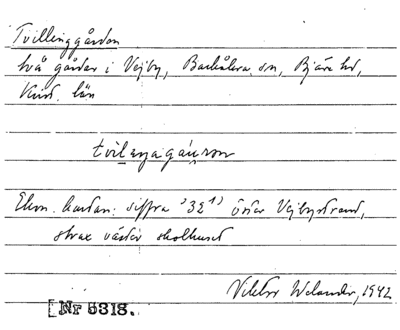 Tvillinggården
två gårdar i Vejby, Barkåkra sn, Bjäre hd,
Krist. län
tvileŋagáuron
Ekon. kartan: siffra "32") öster Vejbystrand,
strax väster skolhuset
Viktor Welander, 1942
[Nr 5318.